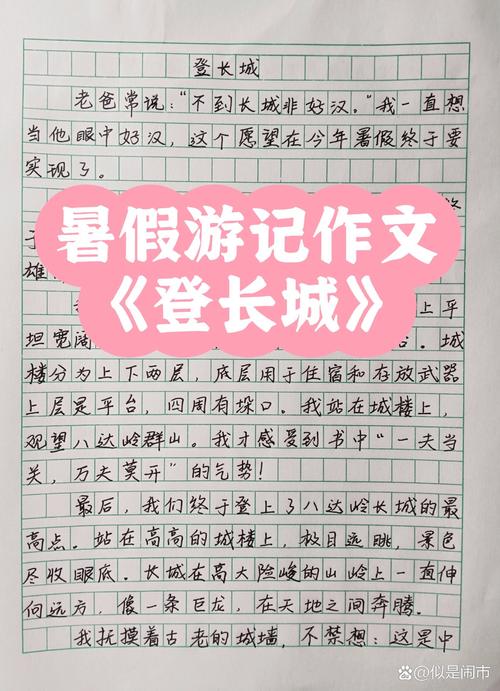 登长城
老爸常说："不到长城非好汉。"我一直想
当他眼中好汉，这个愿望在今年暑假终于要
实现了。
于
雄
暑假游记作文
《登长城》
上平
坦宽阔
台。城
楼分为上下两层，底层用于住宿和存放武器
上层是平台，四周有垛口。我站在城楼上，
观望八达岭群山。我才感受到书中"一夫当
关，万夫莫开"的气势！
最后，我们终于登上了八达岭长城的最
高点。站在高高的城楼上，极目远眺，景色
尽收眼底。长城在高大险峻的山岭上一直伸
向远方，像一条巨龙，在天地之间奔腾。
我抚摸着古老的城墙，不禁想：这是中
@似是闹市